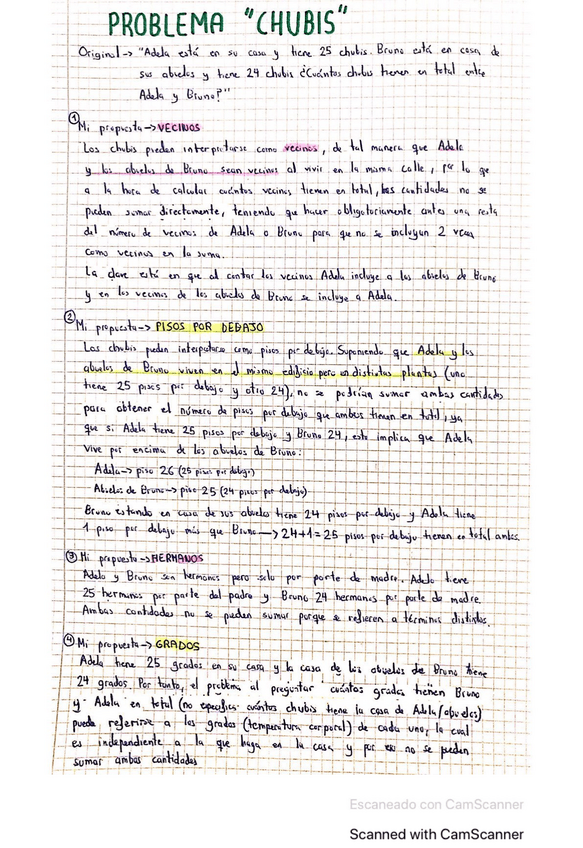 PROBLEMA "CHUBIS"
Original -> "Adela está en su casa y tiene 25 chubis. Bruno está en casa de
sus abuelos y tiene 24 chubis ¿Cuántos chubis tienen en total entre
Adela y Bruno?"
① Mi propuesta -> VECINOS
Los chubis pueden interpretarse como vecinos, de tal manera que Adela
y los abuelos de Bruno sean vecinos al vivir en la misma calle, por lo que
a la hora de calcular cuántos vecinos tienen en total, las cantidades no se
pueden sumar directamente, teniendo que hacer obligatoriamente antes una resta
del número de vecinos de Adela o Bruno para que no se incluyan 2 veces
como vecinos en la suma.
La clave está en que al contar los vecinos Adela incluye a los abuelos de Bruno
y en los vecinos de los abuelos de Bruno se incluye a Adela.
② Mi propuesta -> PISOS POR DEBAJO
Los chubis pueden interpretarse como pisos por debajo. Suponiendo que Adela y los
abuelos de Bruno viven en el mismo edificio pero en distintas plantas (uno
tiene 25 pisos por debajo y otro 24), no se podrían sumar ambas cantidades
para obtener el número de pisos por debajo que ambos tienen en total, ya
que si Adela tiene 25 pisos por debajo y Bruno 24, esto implica que Adela
vive por encima de los abuelos de Bruno:
Adela -> piso 26 (25 pisos por debajo)
Abuelos de Bruno -> piso 25 (24 pisos por debajo)
Bruno estando en casa de sus abuelos tiene 24 pisos por debajo y Adela tiene
1 piso por debajo más que Bruno -> 24+1=25 pisos por debajo tienen en total ambos.
③ Mi propuesta -> HERMANOS
Adela y Bruno son hermanos pero solo por parte de madre. Adela tiene
25 hermanos por parte del padre y Bruno 24 hermanos por parte de madre.
Ambas cantidades no se pueden sumar porque se refieren a términos distintos.
④ Mi propuesta -> GRADOS
Adela tiene 25 grados en su casa y la casa de los abuelos de Bruno tiene
24 grados. Por tanto, el problema al preguntar cuántos grados tienen Bruno
y Adela en total (no especifica cuántos chubis tiene la casa de Adela/abuelos)
puede referirse a los grados (temperatura corporal) de cada uno, la cual
es independiente a la que haya en la casa y por eso no se pueden
sumar ambas cantidades
Escaneado con CamScanner
Scanned with CamScanner